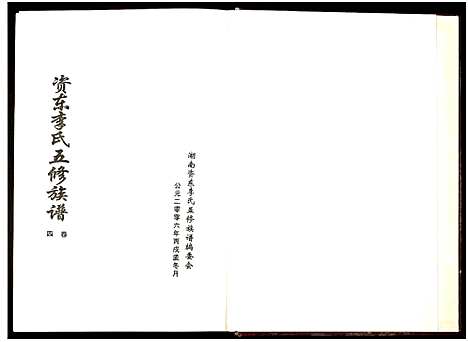 资东李氏五修族谱
卷四
湖南资东李氏五修族谱编委会
公元二零零六年丙戌孟冬月